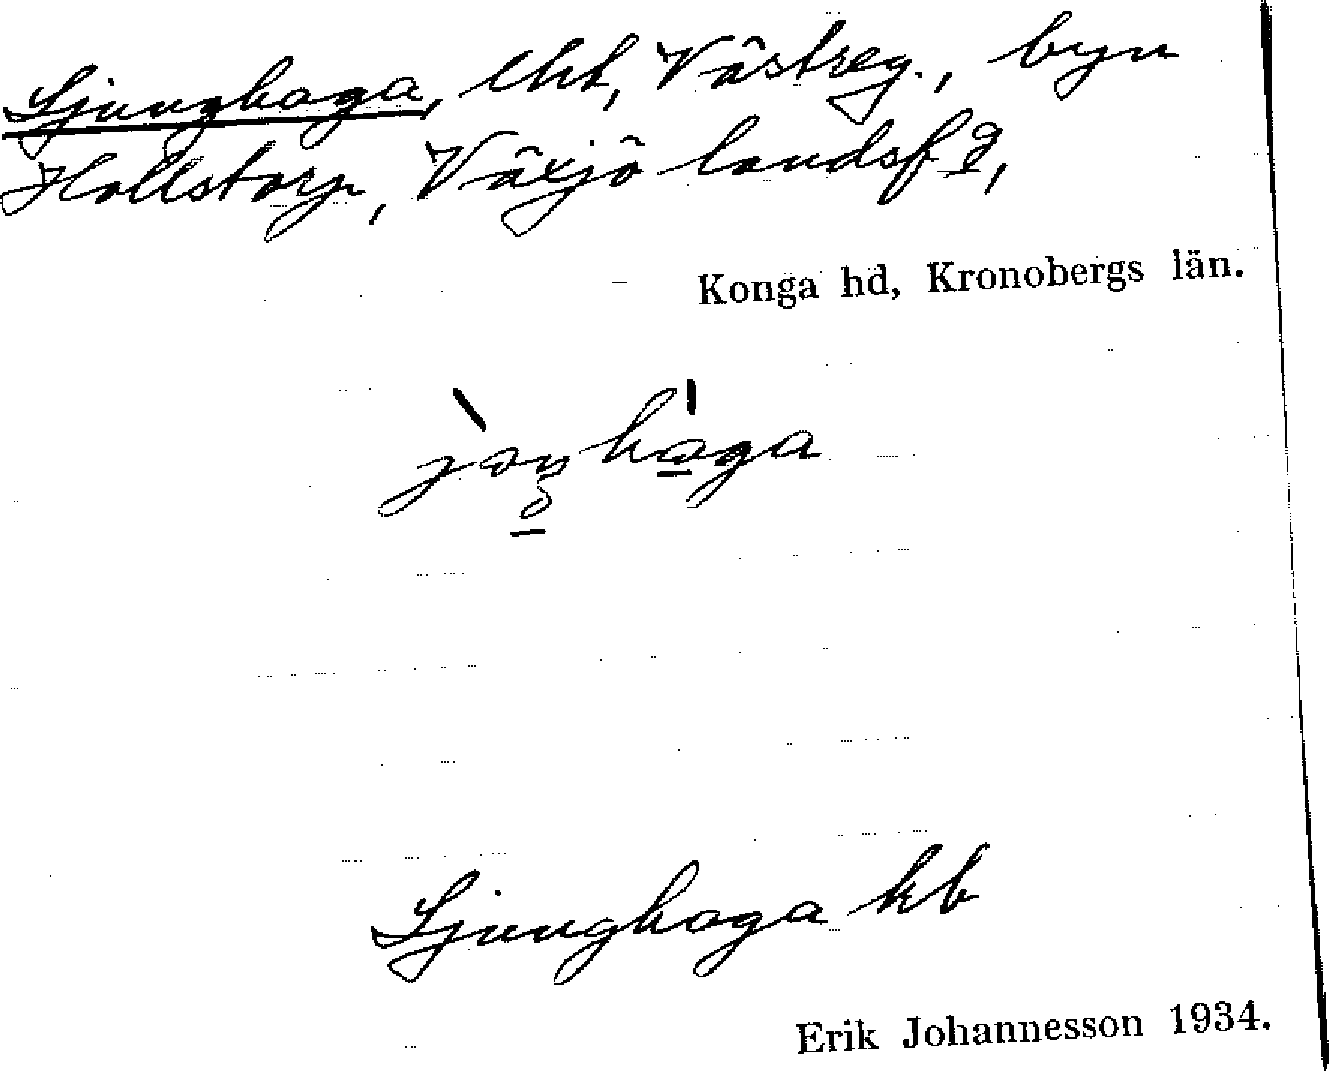 Ljunghaga, lht, Västreg., byn
Hallstorp, Växjö landsf g,
Konga hd, Kronobergs län.
jɷŋhaga
Ljunghaga kb
Erik Johannesson 1934.